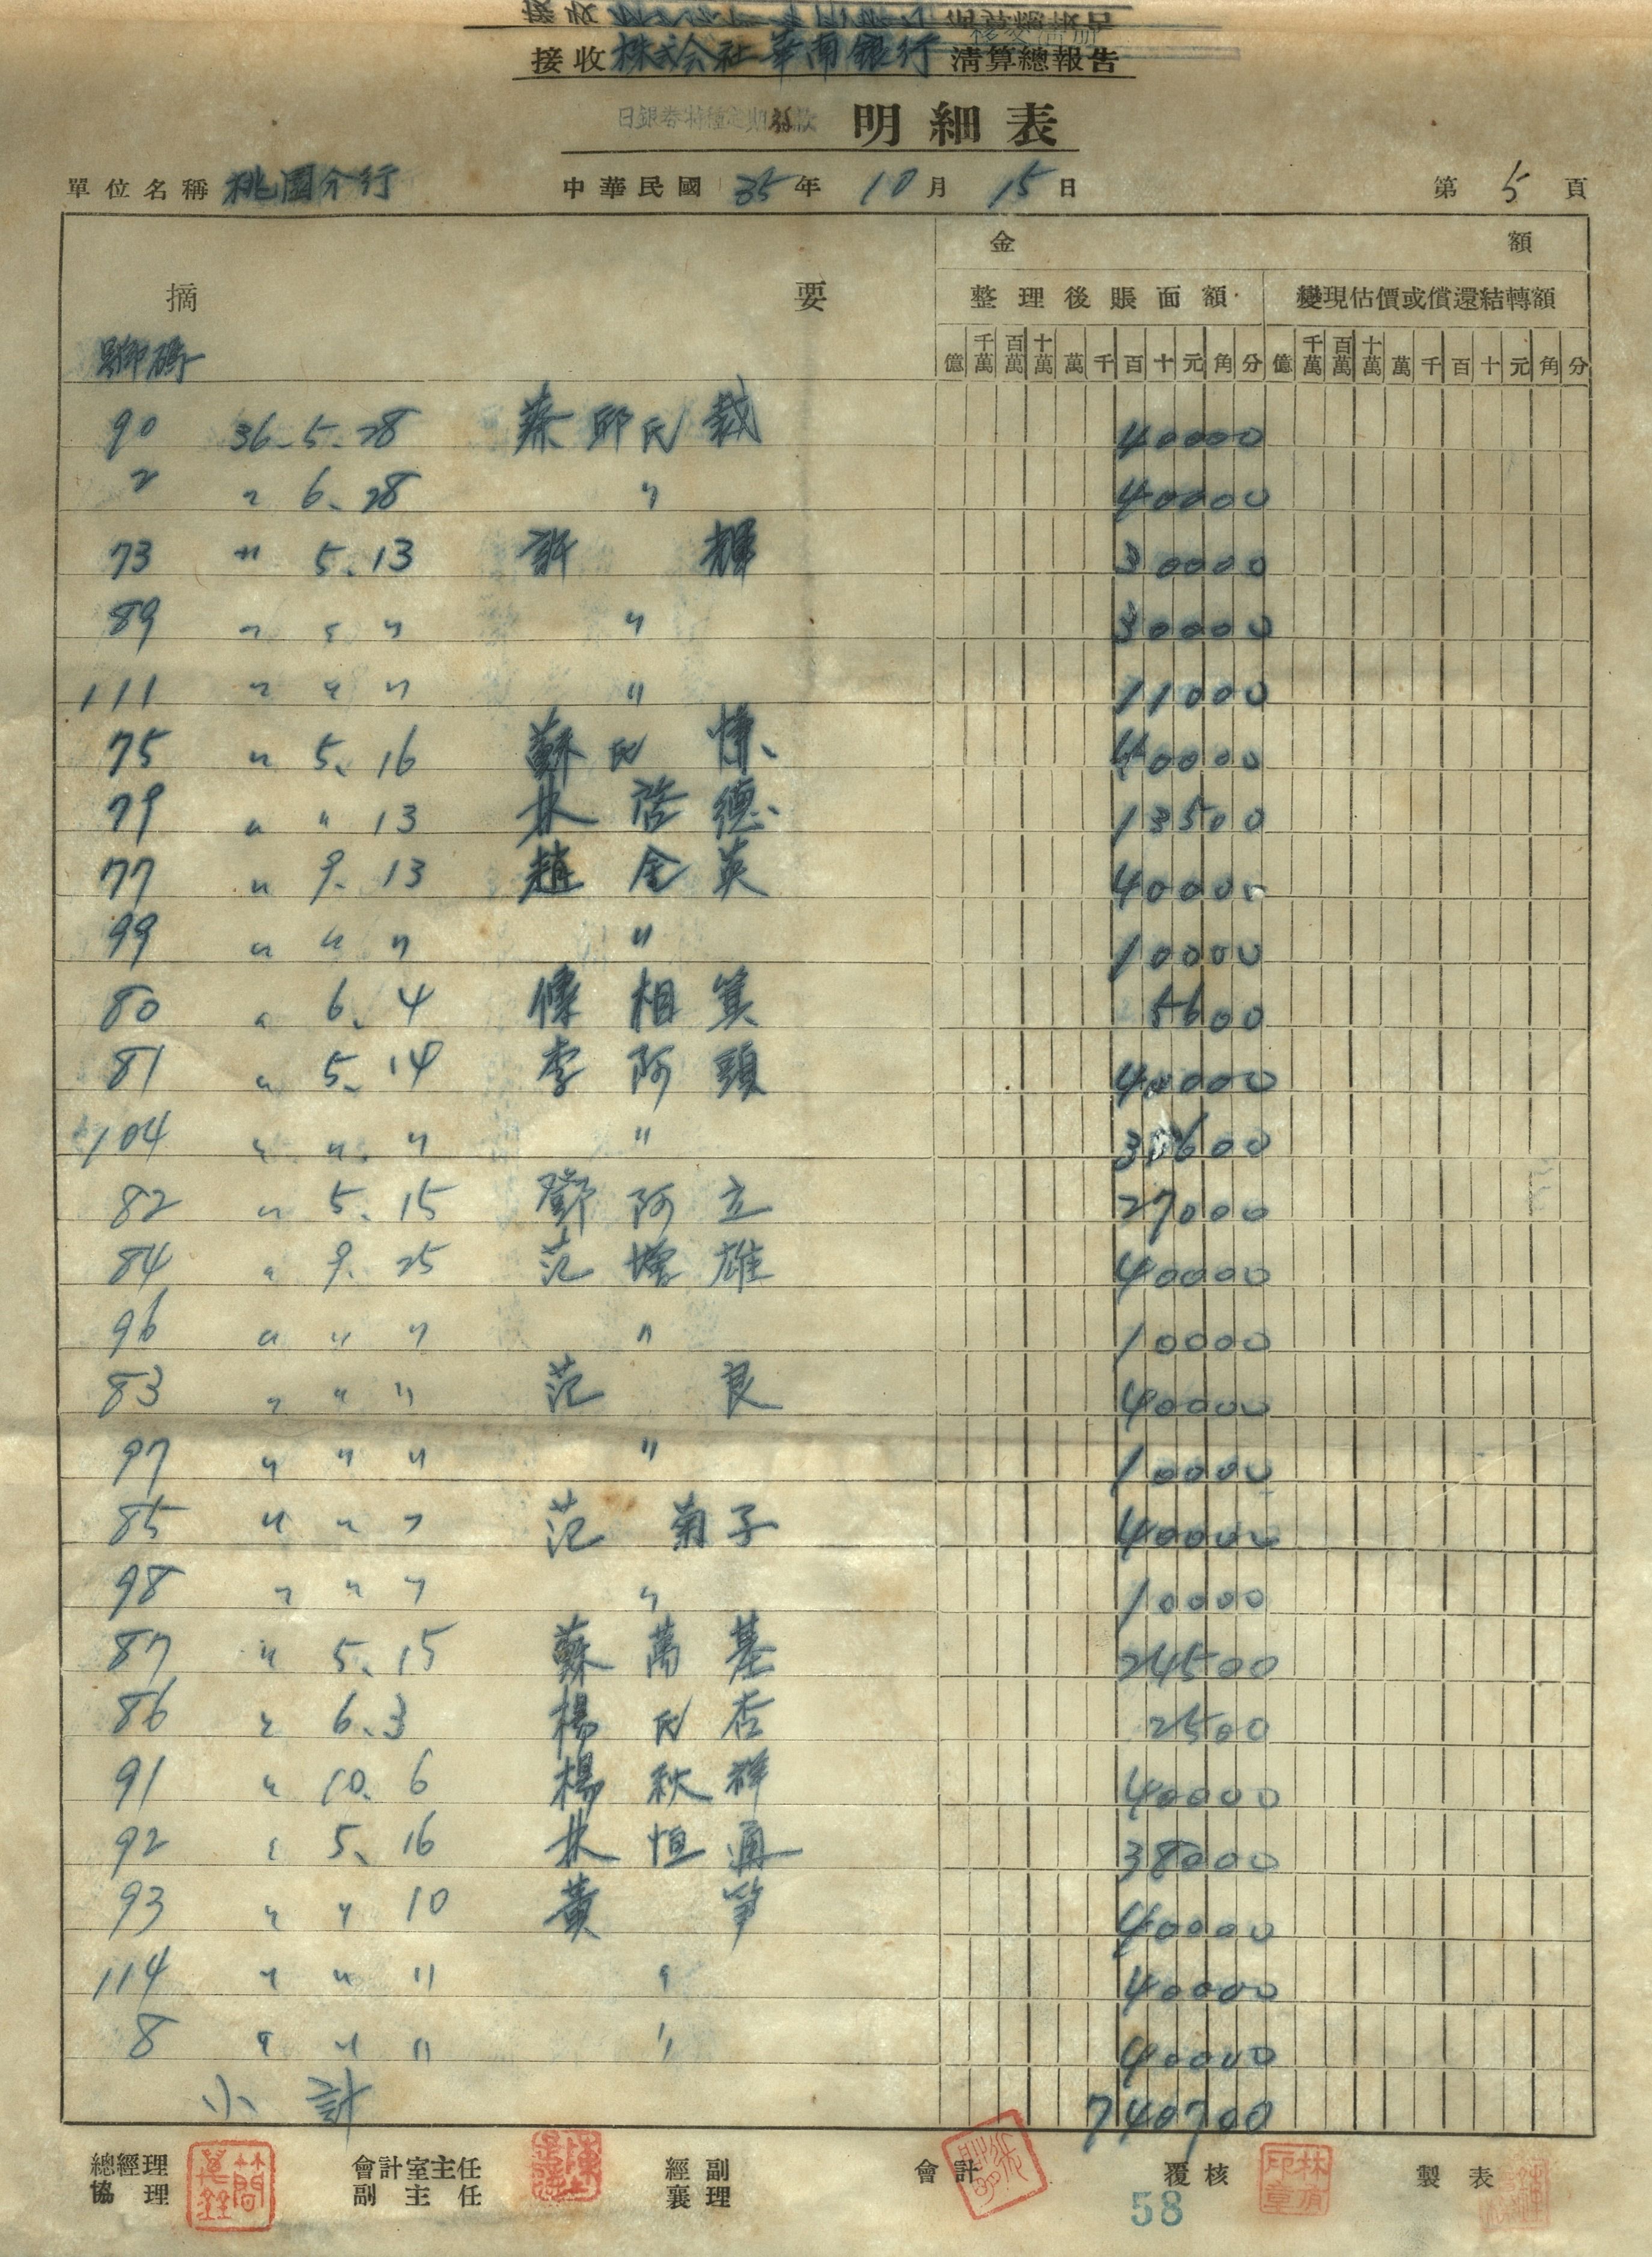 接收株式会社華南銀行清算總報告
日銀券特種定期存款 明細表
單位名稱 桃園分行 中華民國 35年 10月 15日 第 5 頁
金 額
摘 要 整理後賬面額 變現估價或償還結轉額
號碼 億 千萬 百萬 十萬 萬 千 百 十 元 角 分 億 千萬 百萬 十萬 萬 千 百 十 元 角 分
90 36.5.28 蔡邱氏 40000
2 〃 6.28 〃 40000
73 〃 5.13 許輝 30000
89 〃 〃 〃 〃 30000
111 〃 〃 〃 〃 11000
75 〃 5.16 蘇氏 40000
79 〃 〃 13 林啓德 13500
77 〃 9.13 趙金英 40000
99 〃 〃 〃 〃 10000
80 〃 6.4 相箕 5600
81 〃 5.14 李阿頭 40000
104 〃 〃 〃 〃 600
82 〃 5.15 鄧阿立 27000
84 〃 9.25 范增雄 40000
96 〃 〃 〃 〃 10000
83 〃 〃 〃 范良 40000
97 〃 〃 〃 〃 10000
85 〃 〃 〃 范菊子 40000
98 〃 〃 〃 〃 10000
87 〃 5.15 蘇萬基 24500
86 〃 6.3 楊氏杏 2500
91 〃 10.6 楊秋祥 40000
92 〃 5.16 林恒通 38000
93 〃 〃 10 黃笋 40000
114 〃 〃 〃 〃 40000
8 〃 〃 〃 〃 40000
小計 740700
總經理 會計室主任 經副 會計 覆核 製表
協理 副主任 襄理
林
印章
58